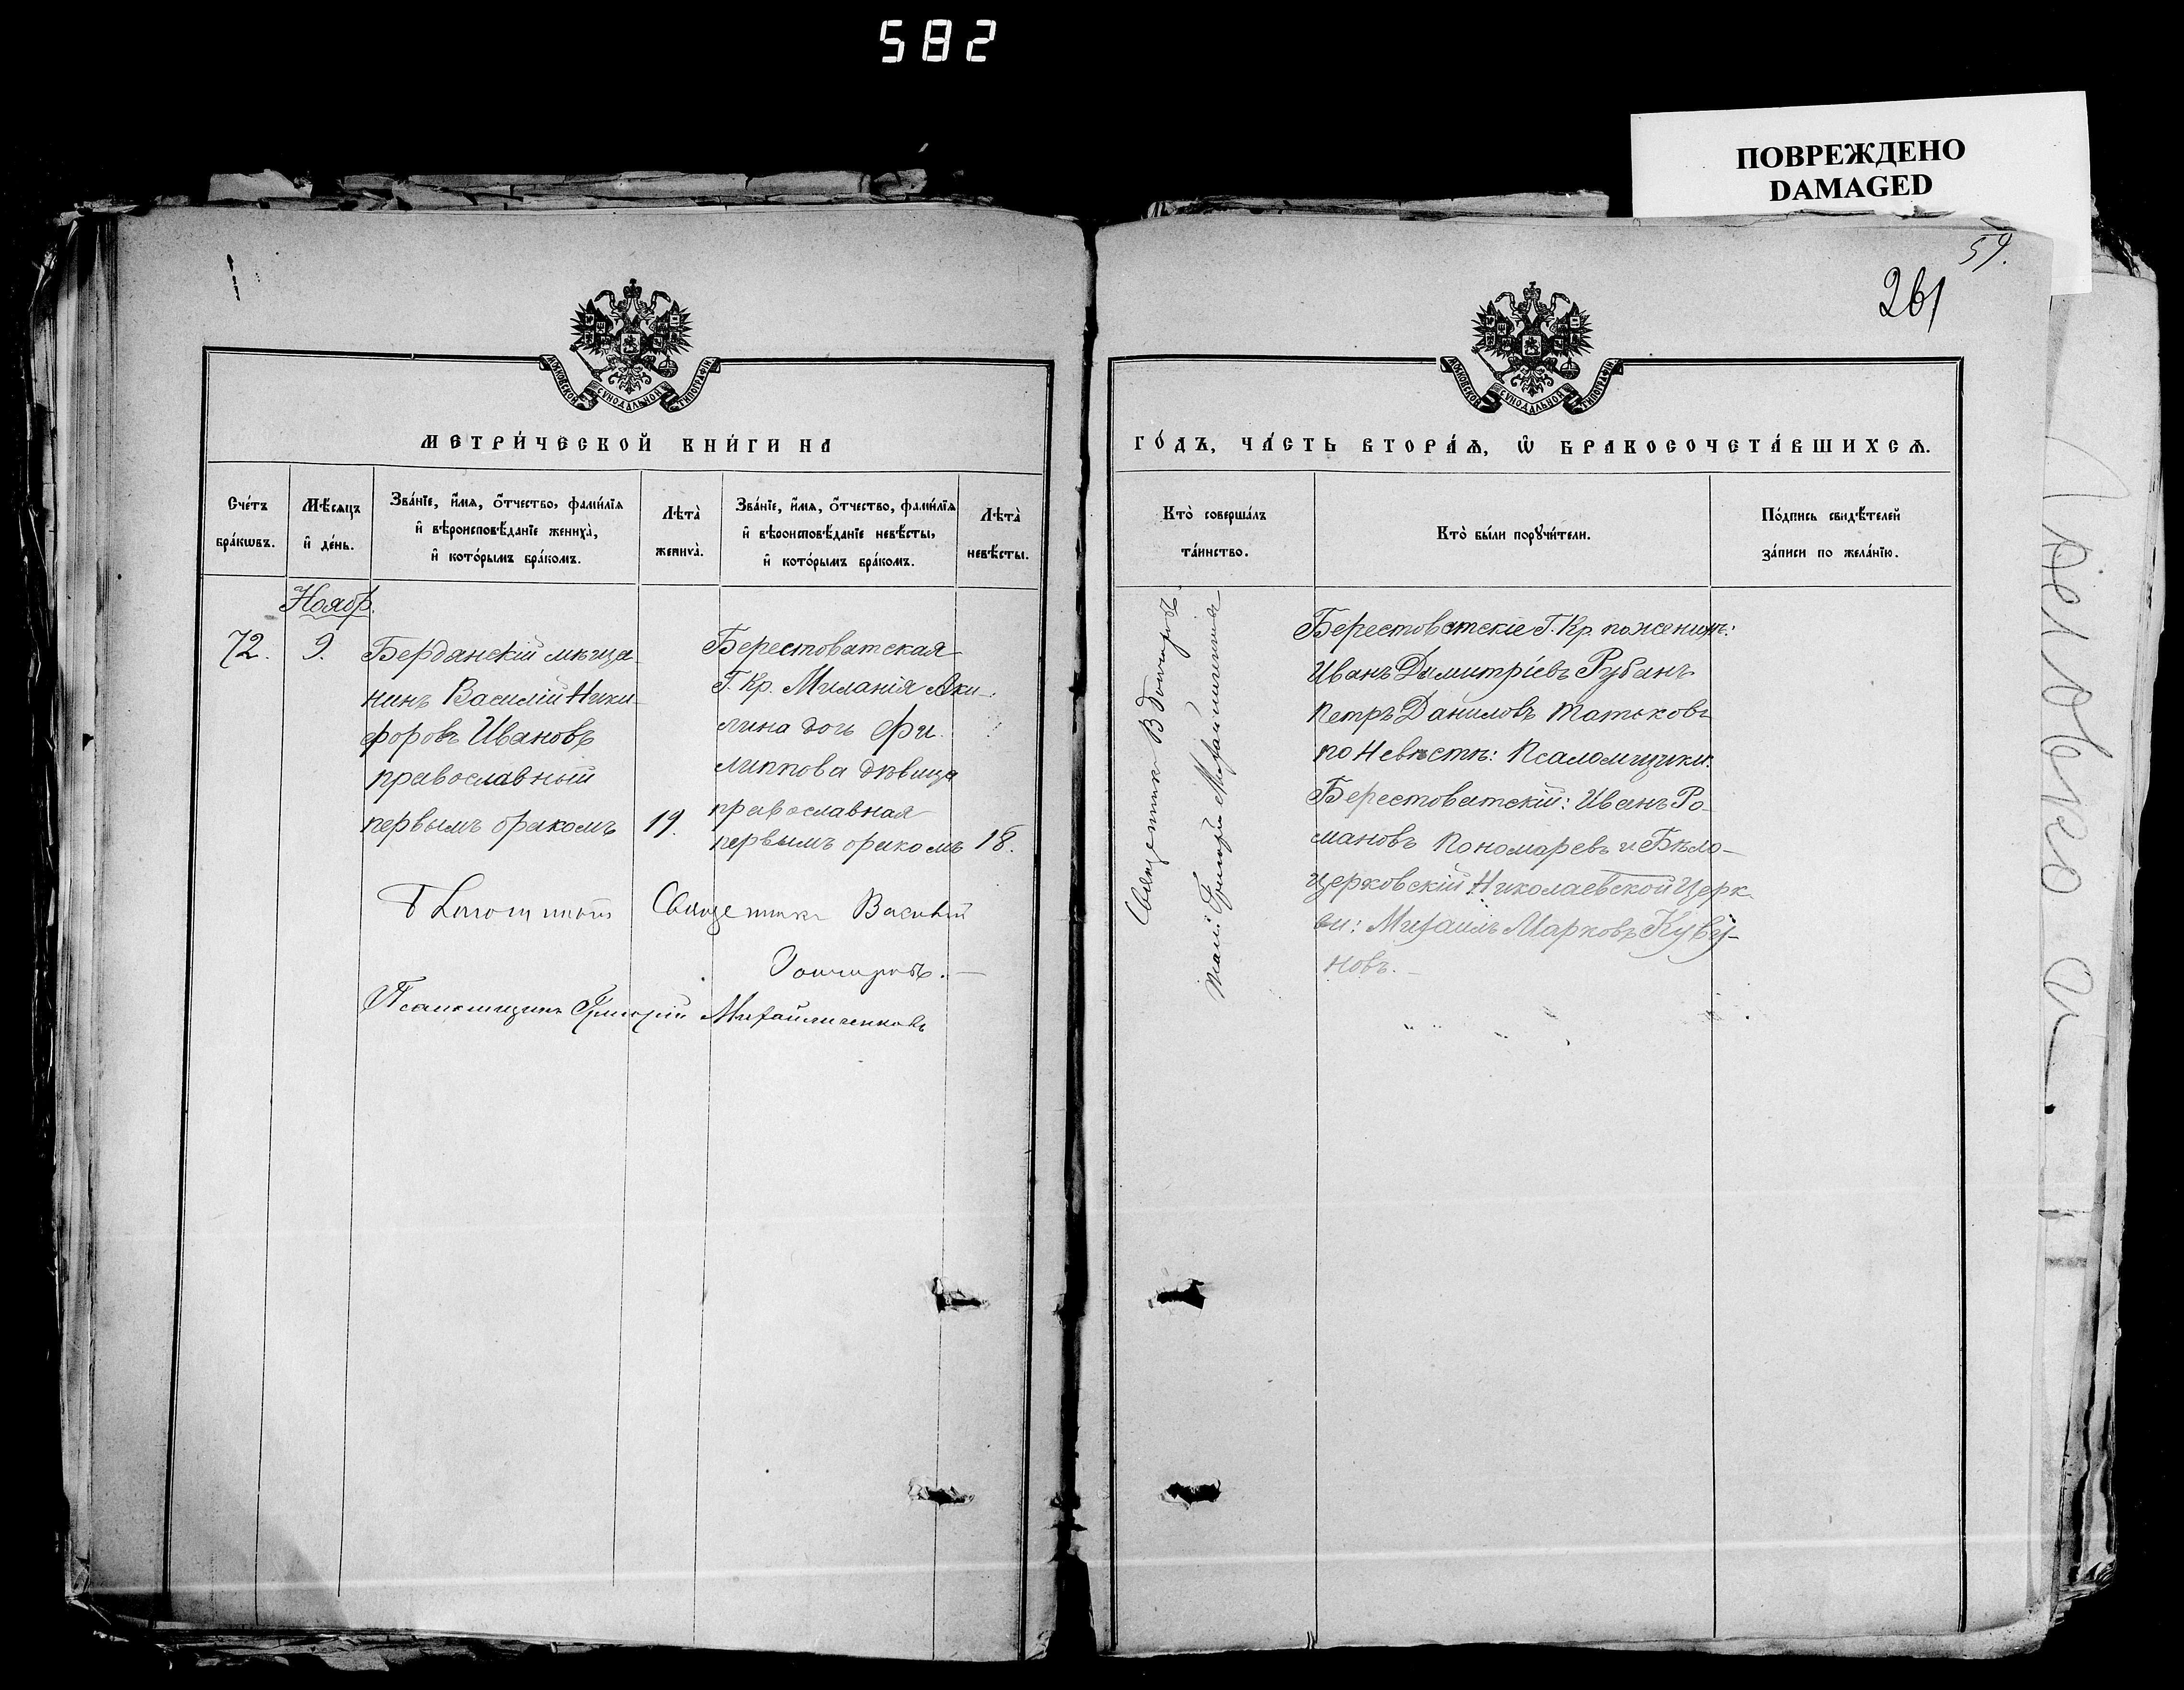 582
ПОВРЕЖДЕНО
DAMAGED
59.
261
МОСКОВСКОЙ СѴНОДАЛЬНОЙ ТИПОГРАФІИ
МЕТРИ́ЧЕСКОЙ КНИ́ГИ НА
Сче́тъ бра́кѡвъ.
Мѣ́сяцъ и҆ де́нь.
Зва́нїе, и҆́мя, ѻ҆́тчество, фами́лїя
и҆ вѣроисповѣ́данїе жениха̀,
и҆ кото́рымъ бра́комъ.
Лѣта̀ жениха̀.
Зва́нїе, и҆́мя, ѻ҆́тчество, фами́лїя
и҆ вѣроисповѣ́данїе невѣ́сты,
и҆ кото́рымъ бра́комъ.
Лѣта̀ невѣ́сты.
Ноябр.
72.
9.
Бердянскій мѣща-
нинъ Василій Ники-
форовъ Ивановъ
православный
первымъ бракомъ
19.
Берестоватская
Г. Кр. Миланія Аки-
лина дочь Фи-
липпова дѣвица
православная
первымъ бракомъ
18.
Священникъ Василій
Гончаровъ.—
Псаломщикъ Григорій Михайличенковъ
МОСКОВСКОЙ СѴНОДАЛЬНОЙ ТИПОГРАФІИ
ГО́ДЪ, ЧА́СТЬ ВТОРА́Я, Ѡ҆ БРАКОСОЧЕТА́ВШИХСЯ.
Кто̀ соверша́лъ
та́инство.
Кто̀ бы́ли порꙋчи́тели.
По́дпись свидѣ́телей
за́писи по жела́нїю.
Священникъ В Гончаровъ
Григорій Михайличенко
Берестоватскіе Г. Кр. по жених:
Иванъ Димитріевъ Рубанъ
Петръ Даниловъ Татьковъ
по Невѣстѣ: Псаломщики:
Берестоватскій: Иванъ Ро-
мановъ Пономаревъ и Бѣло-
церковскій Николаевской Церк-
ви: Михаилъ Марковъ Куву-
новъ.—